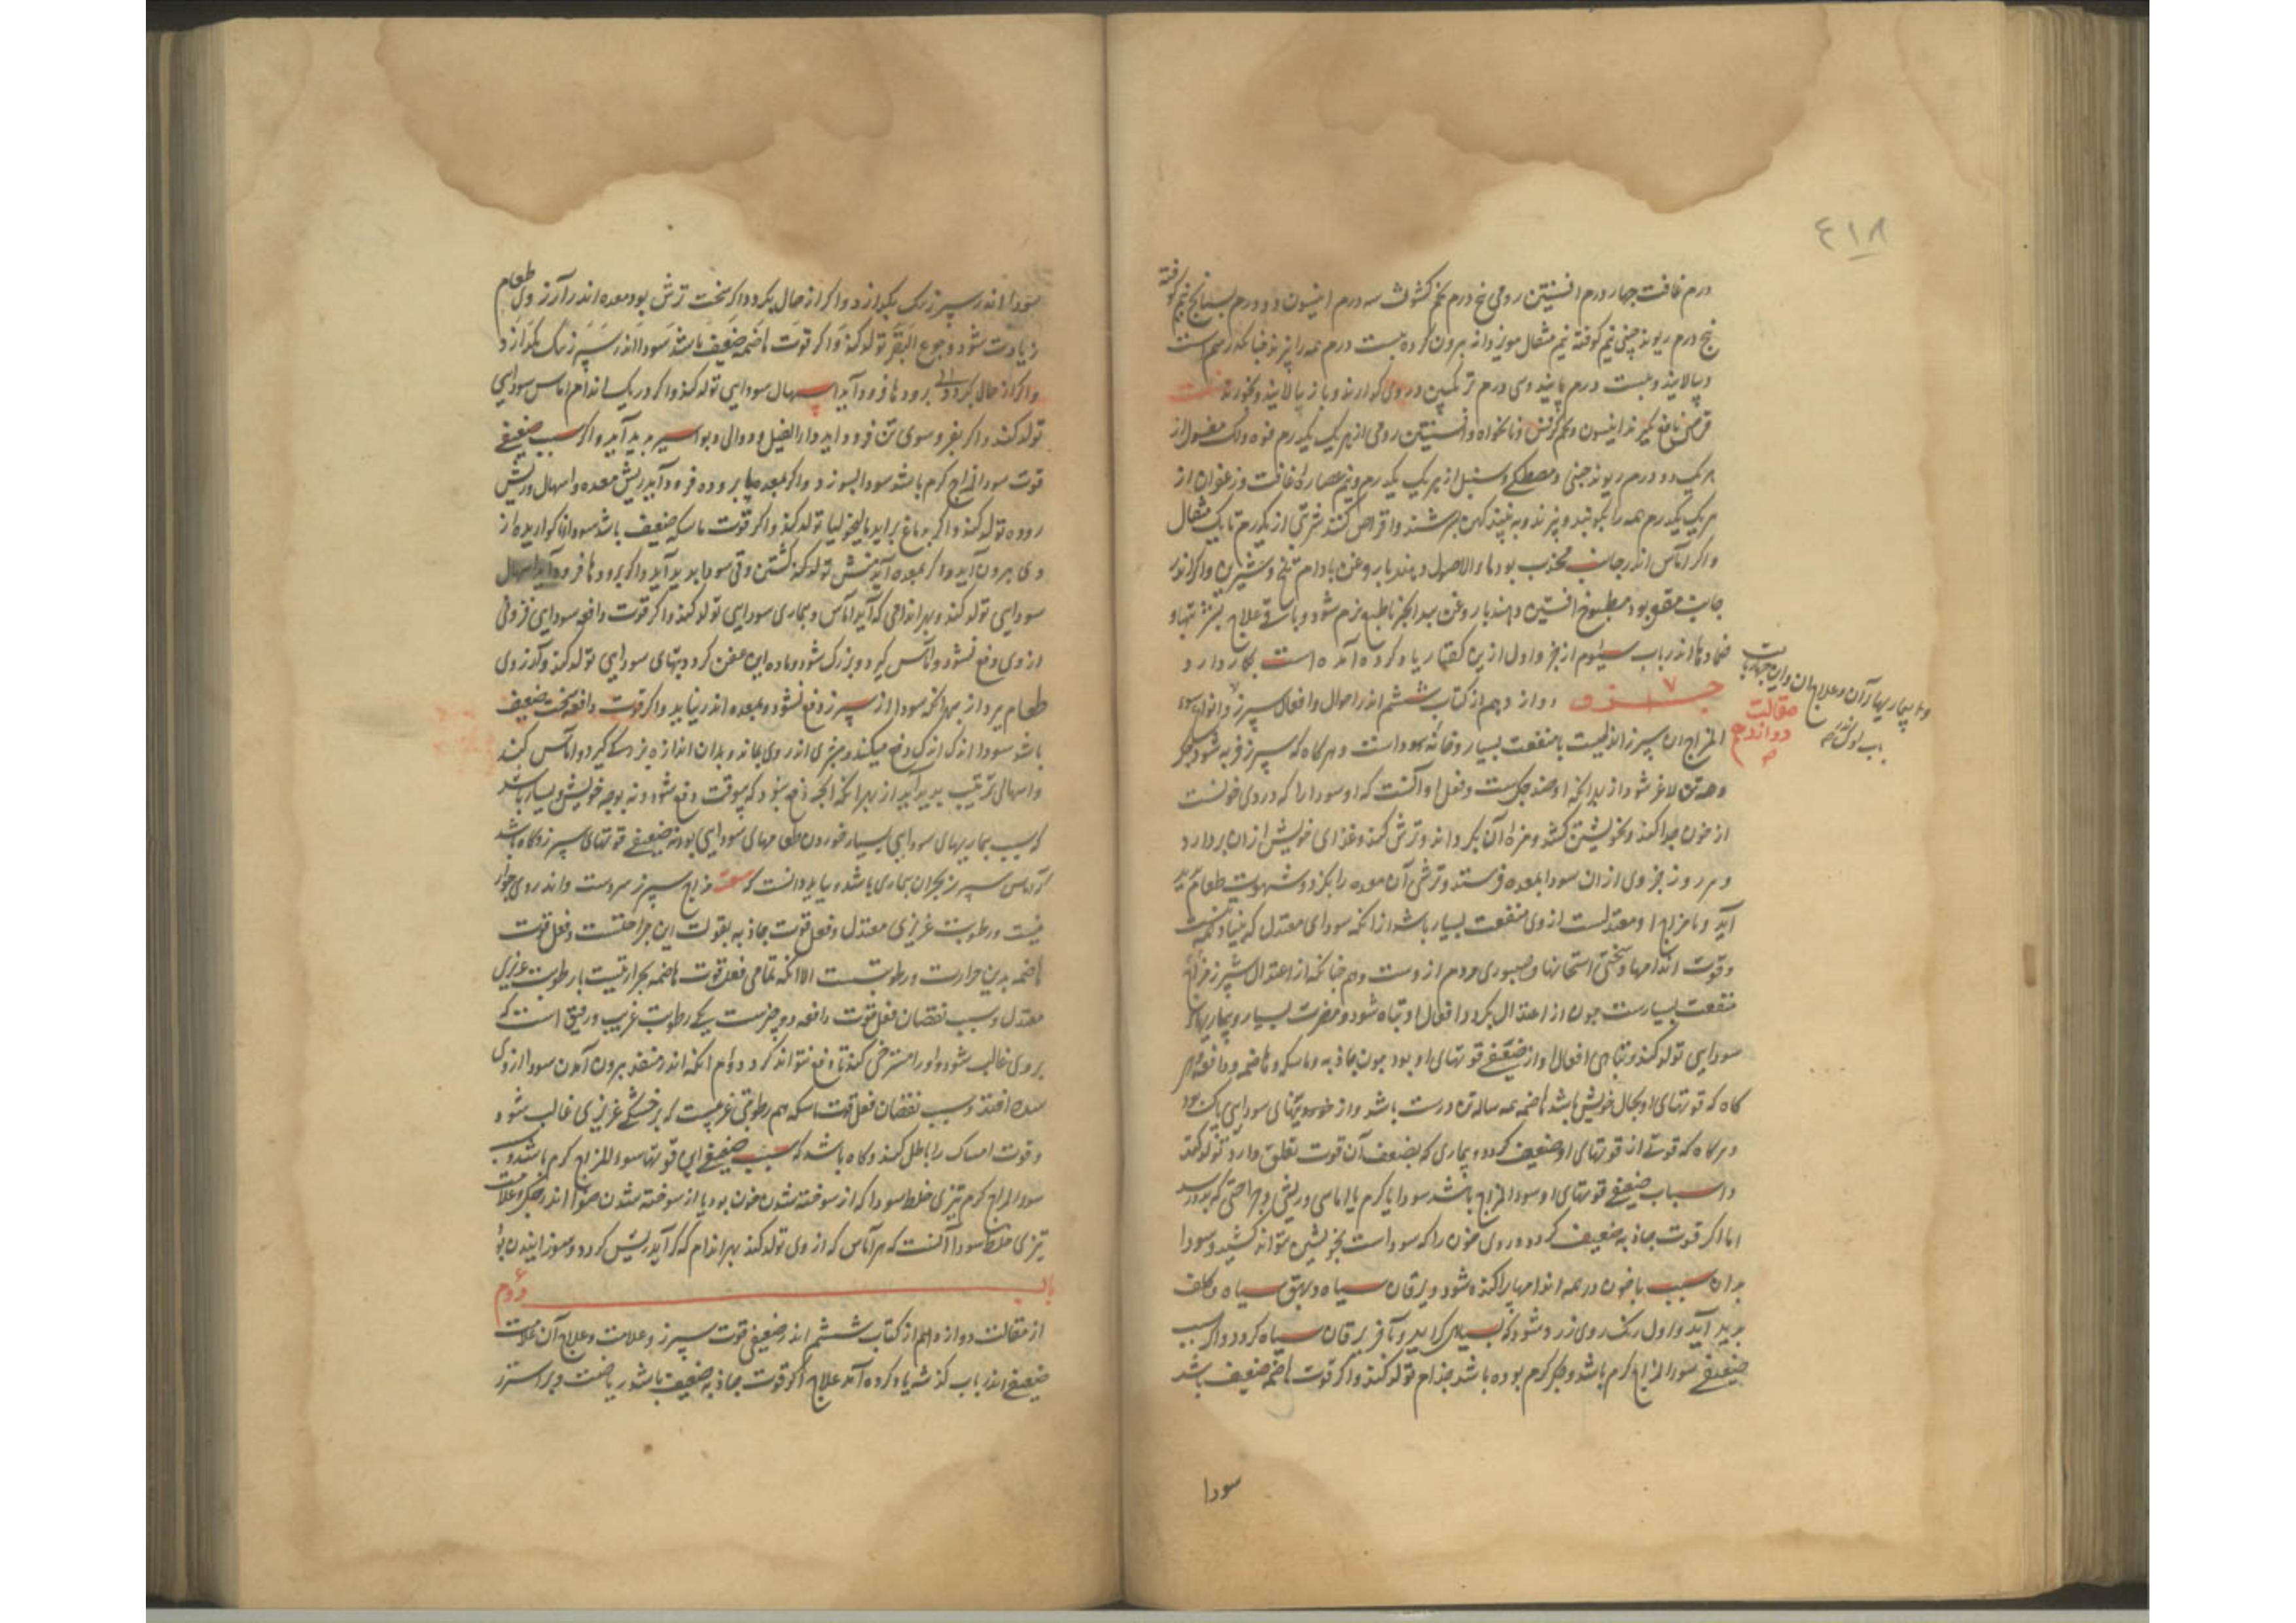 ٤١٨
درم غافت چهار درم افسنتین رومی پنج درم تخم کشوث سه درم انیسون دو درم بسفایج نیم کوفته
پنج درم ریوند چینی نیم کوفته نیم مثقال مویز دانه بیرون کرده بیست درم همه را بپزند چنانکه رسم است
و بپالایند و بیست درم پانید و سی درم ترنکبین در وی کدارند و باز بپالایند و بخورند
قرص نافع بکیرند انیسون و تخم کرفس و نانخواه و افسنتین رومی از هر یک یکدرم فوه و لک مغسول از
هر یک دو درم ریوند چینی و مصطکی و سنبل از هر یک یکدرم و نیم عصاره غافت و زعفران از
هر یک یکدرم همه را بکوبند و بپزند و به نبیذ کهن بسرشند و اقراص کنند شربتی از یکدرم تا یک مثقال
واکر آماس اندر جانب محدب بود ماء الاصول دهند با روغن بادام تلخ و شیرین واکر اندر
جانب مقعر بود مطبوخ افسنتین دهند با روغن بیدانجیر تا طبع نرم شود و باقی علاج شربتها و
ضمادها اندر باب سیوم از جزو اول ازین کفتار یاد کرده آمده است بکار دارد
جزو دوازدهم از کتاب ششم اندر احوال و افعال سپرز و انواع سوء
المزاج ان سپرز اندامیست با منفعت بسیار و خانه سوداست و هرکاه که سپرز فربه شود جکر
و همه تن لاغر شود از بهر آنکه او ضد جکرست و فعل او آنست که او سودا را که دردی خونست
از خون جدا کند و بخویشتن کشد و مزه آن بکرداند و ترش کند و غذای خویش ازان بردارد
و هر روز جزوی ازان سودا بمعده فرستد و ترشی آن معده را بکزد و شهوت طعام پدید
آید و تا مزاج او معتدلست از وی منفعت بسیار باشد از انکه سودای معتدل که بنیاد
و قوت اندامها و سختی استخوانها و صبوری مردم از وست و هم چنانکه از اعتدال سپرز مزاج
منفعت بسیارست چون از اعتدال بکردد افعال او تباه شود و مضرت بسیار و بیماریهای
سودایی تولد کند و تباهی افعال او از ضعیفی قوتهای او بود چون جاذبه و ماسکه و هاضمه و دافعه هر
کاه که قوتهای او بحال خویش باشد هاضمه همه ساله تن درست باشد و از خون سوداییهای سودایی پاک بود
و هرکاه که قوتی از قوتهای او ضعیف کردد و بیماری که بضعف آن قوت تعلق دارد تولد کند
و اسباب ضعیفی قوتهای او سوء المزاج باشد سرد یا کرم یا اماسی و ریشی و جراحتی که بدو رسد
اما اکر قوت جاذبه ضعیف کردد دردی خون را که سوداست بخویشتن نتواند کشید و سودا
بدان سبب با خون در همه اندامها پراکنده شود و یرقان سیاه و بهق سیاه و کلف
پدید آید و اول رنک روی زرد شود که بسیاهی کراید و باخر یرقان سیاه کردد واکر سبب
ضعیفی سوء المزاج کرم باشد و جکر کرم بوده باشد جذام تولد کند واکر قوت هاضمه ضعیف باشد
مقالت
دوازدهم
سودا
سودا اندر سپرز نیک بکدازد واکر از حال بکردد اکر سخت ترش بود معده اندر آرزوی طعام
زیادت شود و جوع البقر تولد کند واکر قوت هاضمه ضعیف باشد سودا اندر سپرز نیک بکدازد
واکر از حال بکردد و برودها فرود آید اسهال سودایی تولد کند واکر در یک اندام اماس سودایی
تولد کند واکر بفرو سوی تن فرود آید داء الفیل و دوالی و بواسیر پدید آید واکر سبب ضعیفی
قوت سوء المزاج کرم باشد سودا بسوزد واکر بمعده یا بروده فرود آید ریش معده و اسهال و ریش
روده تولد کند واکر بدماغ براید مالیخولیا تولد کند واکر قوت ماسکه ضعیف باشد سودا ناکواریده از
وی بیرون آید واکر بمعده آید منش تولد کند کشتن و قی سودا پدید آید واکر برودها فرود آید اسهال
سودایی تولد کند و بهر اندامی که آید آماس و بیماری سودایی تولد کند واکر قوت دافعه سودایی فزونی
از وی دفع نشود و اماس کیرد و بزرک شود و ماده این عفن کردد و تبهای سودایی تولد کند و آرزوی
طعام برد از بهر انکه سودا از سپرز دفع نشود و بمعده اندر نیاید واکر قوت دافعه سخت ضعیف
باشد سودا اندک اندک دفع میکند و چیزی اندر وی بماند و بدان اندازه بزرکی کیرد و اماس کند
و اسهالی ترتیب پدید آید از بهر انکه انچه دفع شود که بیوقت دفع شود و نه بوجه خویش و بسیار باشد
که سبب بیماریهای سودایی بسیار خوردن طعامهای سودایی بود نه ضعیفی قوتهای سپرز و کاه باشد
که اماس سپرز بحران بیماری باشد و بباید دانست که مزاج سپرز سردست و اندر وی حرارت
نیست و رطوبت غریزی معتدل و فعل قوت جاذبه بقوت این حرارتست و فعل قوت
هاضمه بدین حرارت و رطوبتست الا انکه تمامی فعل قوت هاضمه بحرارتیست با رطوبت غریزی
معتدل و سبب نقصان فعل قوت دافعه دو چیزست یکی رطوبت غریب و رقیق است که
بر وی غالب شود و او را مسترخی کند تا دفع نتواند کرد دوم انکه اندر منفذ بیرون آمدن سودا از وی
سده افتد و سبب نقصان فعل قوت ماسکه هم رطوبتی غریبست که بر خشکی غریزی غالب شود
و قوت امساک را باطل کند و کاه باشد که سبب ضعیفی این قوتها سوء المزاج کرم باشد و سبب
سوء المزاج کرم تیزی خلط سودا که از سوخته شدن خون بود یا از سوخته شدن صفرا اندر جکر و علامت
تیزی خلط سودا آنست که هر آماس که از وی تولد کند بهر اندام که کرد آید ریش کردد و سوزانیدن بود
باب دوم
از مقالت دوازدهم از کتاب ششم اندر ضعیفی قوت سپرز و علامت و علاج آن علامت
ضعیفی اندر باب کذشته یاد کرده آمد علاج اکر قوت جاذبه ضعیف باشد ریاضت و